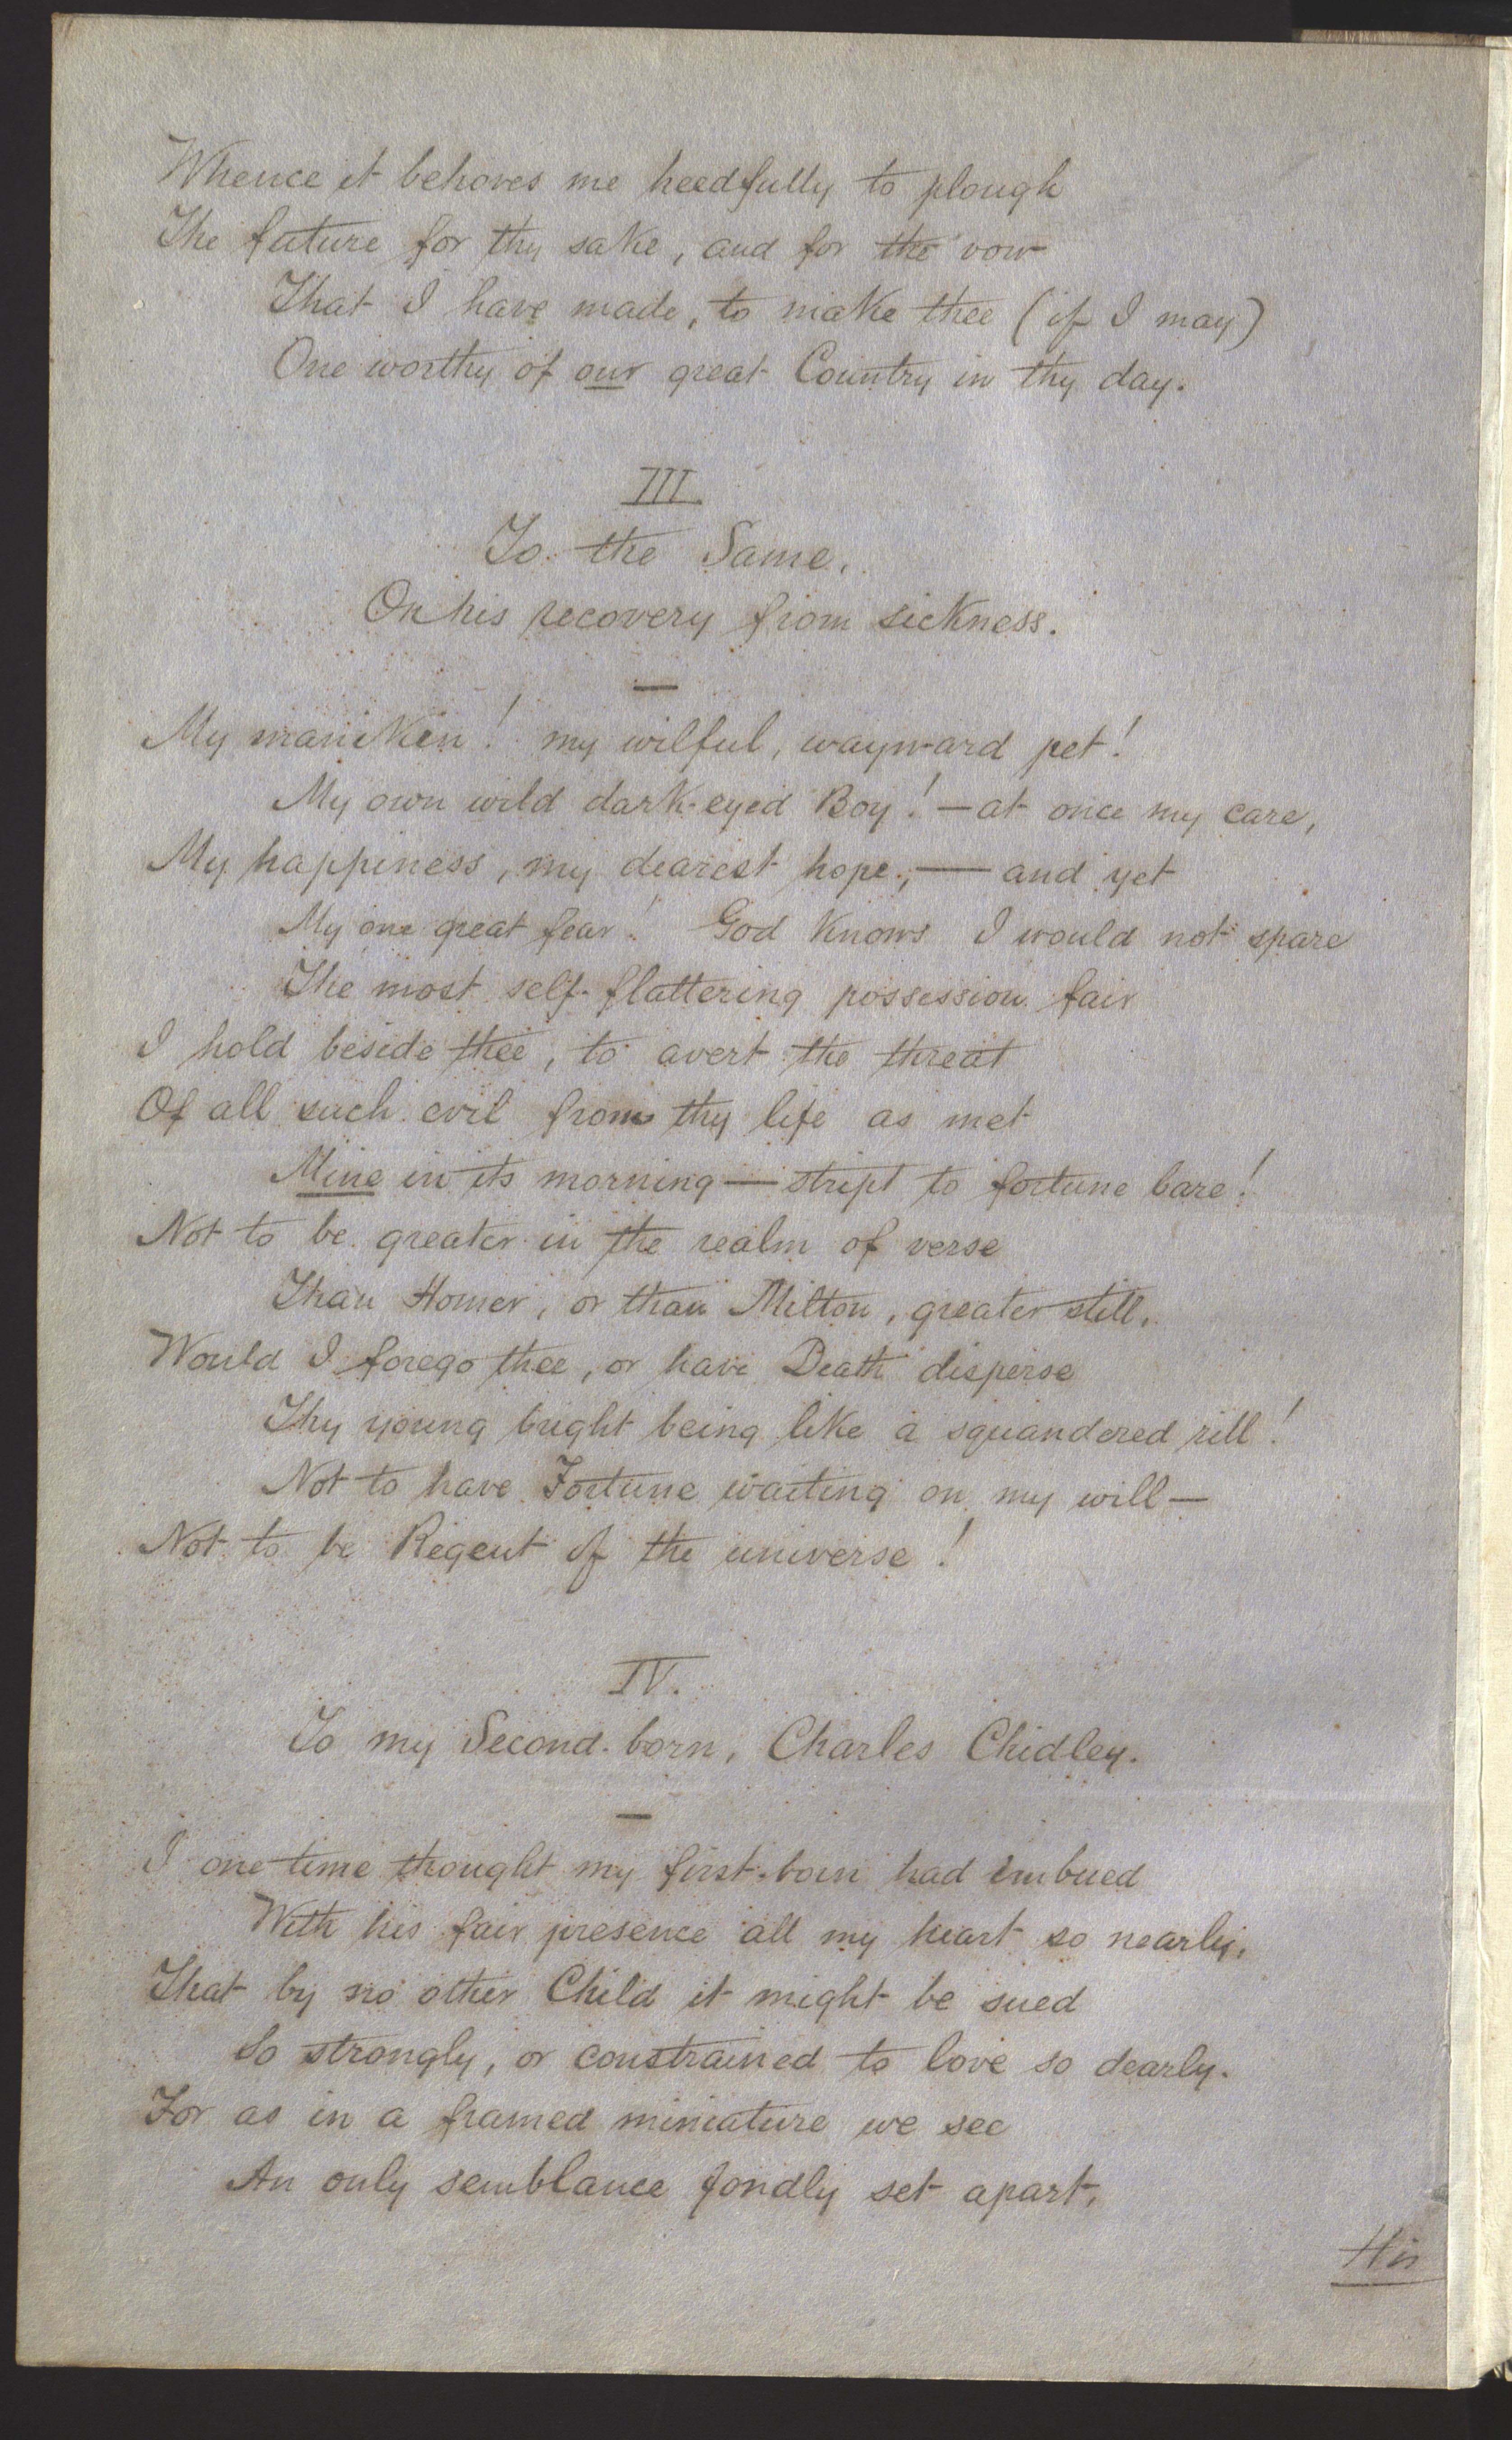 Whence it behoves me heedfully to plough
The future for thy sake, and for the vow
That I have made, to make thee (if I may)
One worthy of our great Country in thy day.
III.
To the Same.
On his recovery from sickness.
—
My maniken! my wilful, wayward pet!
My own wild dark-eyed Boy! — at once my care,
My happiness, my dearest hope, — and yet
My one great fear! God knows I would not spare
The most self-flattering possession fair
I hold beside thee, to avert the threat
Of all such evil from thy life as met
Mine in its morning — stript to fortune bare!
Not to be greater in the realm of verse
Than Homer, or than Milton, greater still,
Would I forego thee, or have Death disperse
Thy young bright being like a squandered rill!
Not to have Fortune waiting on my will —
Not to be Regent of the universe!
IV.
To my Second-born, Charles Chidley.
—
I one time thought my first-born had embued
With his fair presence all my heart so nearly,
That by no other Child it might be sued
So strongly, or constrained to love so dearly.
For as in a framed miniature we see
An only semblance fondly set apart,
His